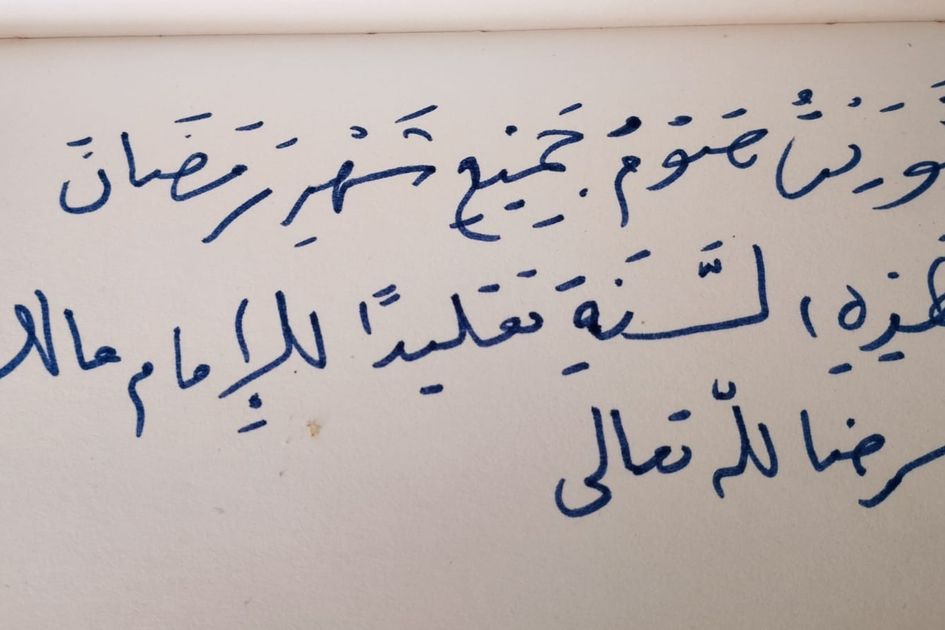 نَوَيْتُ صَوْمُ جَمِيْعِ شَهْرِ رَمَضَانَ
هَذِهِ السَّنَةِ تَقَليدًا للإِمام مالك
فرضا للّه تعالى